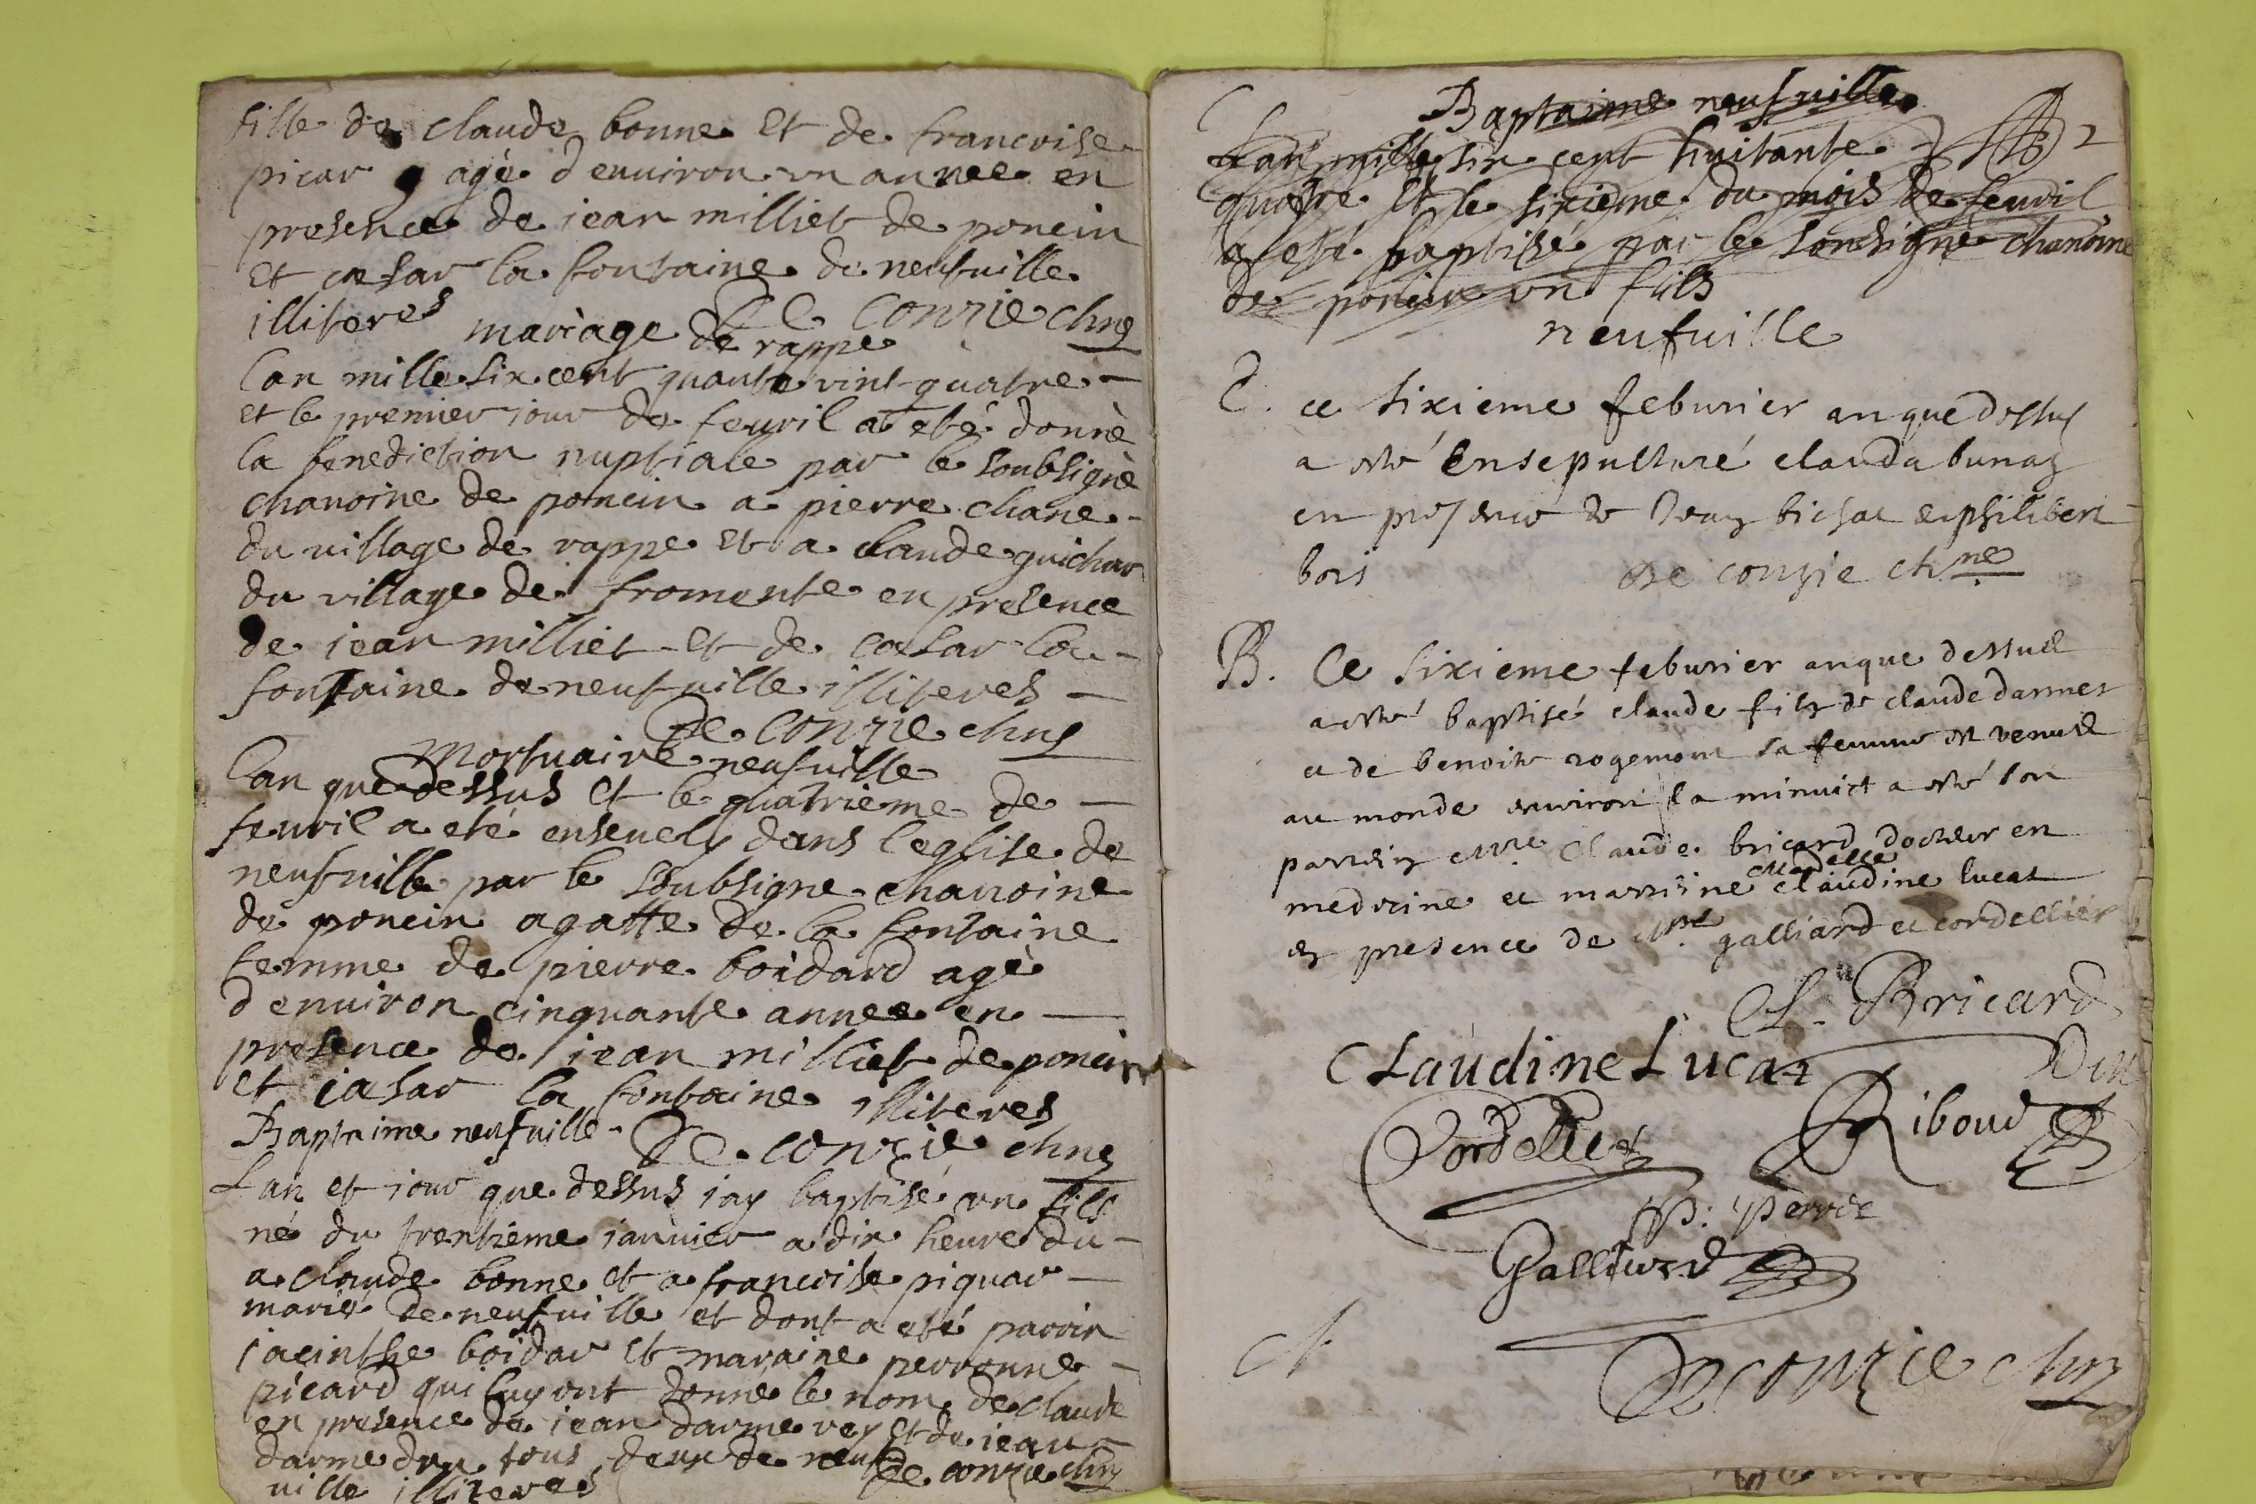 fille de claude bonne et de francoise
picar agé d enuiron vn annee en
presence de iean milliet de poncin
et cæsar la fontaine de neufuille
illiteres De Conzie chne
mariage de rappe
lan mille six cent quante vint quatre
et le premier iour de feuril a eté donné
la benediction nuptiale par le soubsigné
chanoine de poncin a pierre chane
du village de rappe et a claude guichar
du village de fromente en presence
de iean milliet et de cæsar la
fontaine de neufuille illiteres
De Conzie chne
Mortuaire neufuille
lan que dessus et le quatrieme de
feuril a eté enseuely dans leglise de
neufuille par le soubsigne chanoine
de poncin agatte de la fontaine
femme de pierre boidard agé
d enuiron cinquante annee en
presence de iean milliet de poncin
et cæsar la fontaine illiteres
Baptaime neufuille De conzie chne
Lan et iour que dessus iay baptisé vn fils
né du trentieme ianuier a dix heure du
a claude bonne et a francoise piquar
marié de neufuille et dont a eté parrin
iacinthe boidar et maraine perronne
picard qui luy ont donné le nom de claude
en presence de iean darmerey et de iean
darme tous deux de neuf
uille illiteres De conzie chne
Baptaime neufuille
Lan mille six cent huitante
quatre et le sixieme du mois de feuril
a esté baptisé par le soussigné chanoine
de poncin vn fils
neufuille
ce sixieme feburier an que dessus
a esté ensepulturé clauda bunaz
en presence de bichat et philibert
bois De conzie chne
B. Ce sixieme feburier an que dessus
a esté baptisé claude filz de claude darmes
et de benoite rogemont sa femme est venus
au monde enuiron la minuict a esté son
parrein mre Claude bricard docteur en
medecine et marraine madelle claudine lucas
en presence de mre galliard et cordellier
Cl. Bricard
Claudine Lucas
Cordellier Riboud
P: Perrier
Galliard
De conzie chne